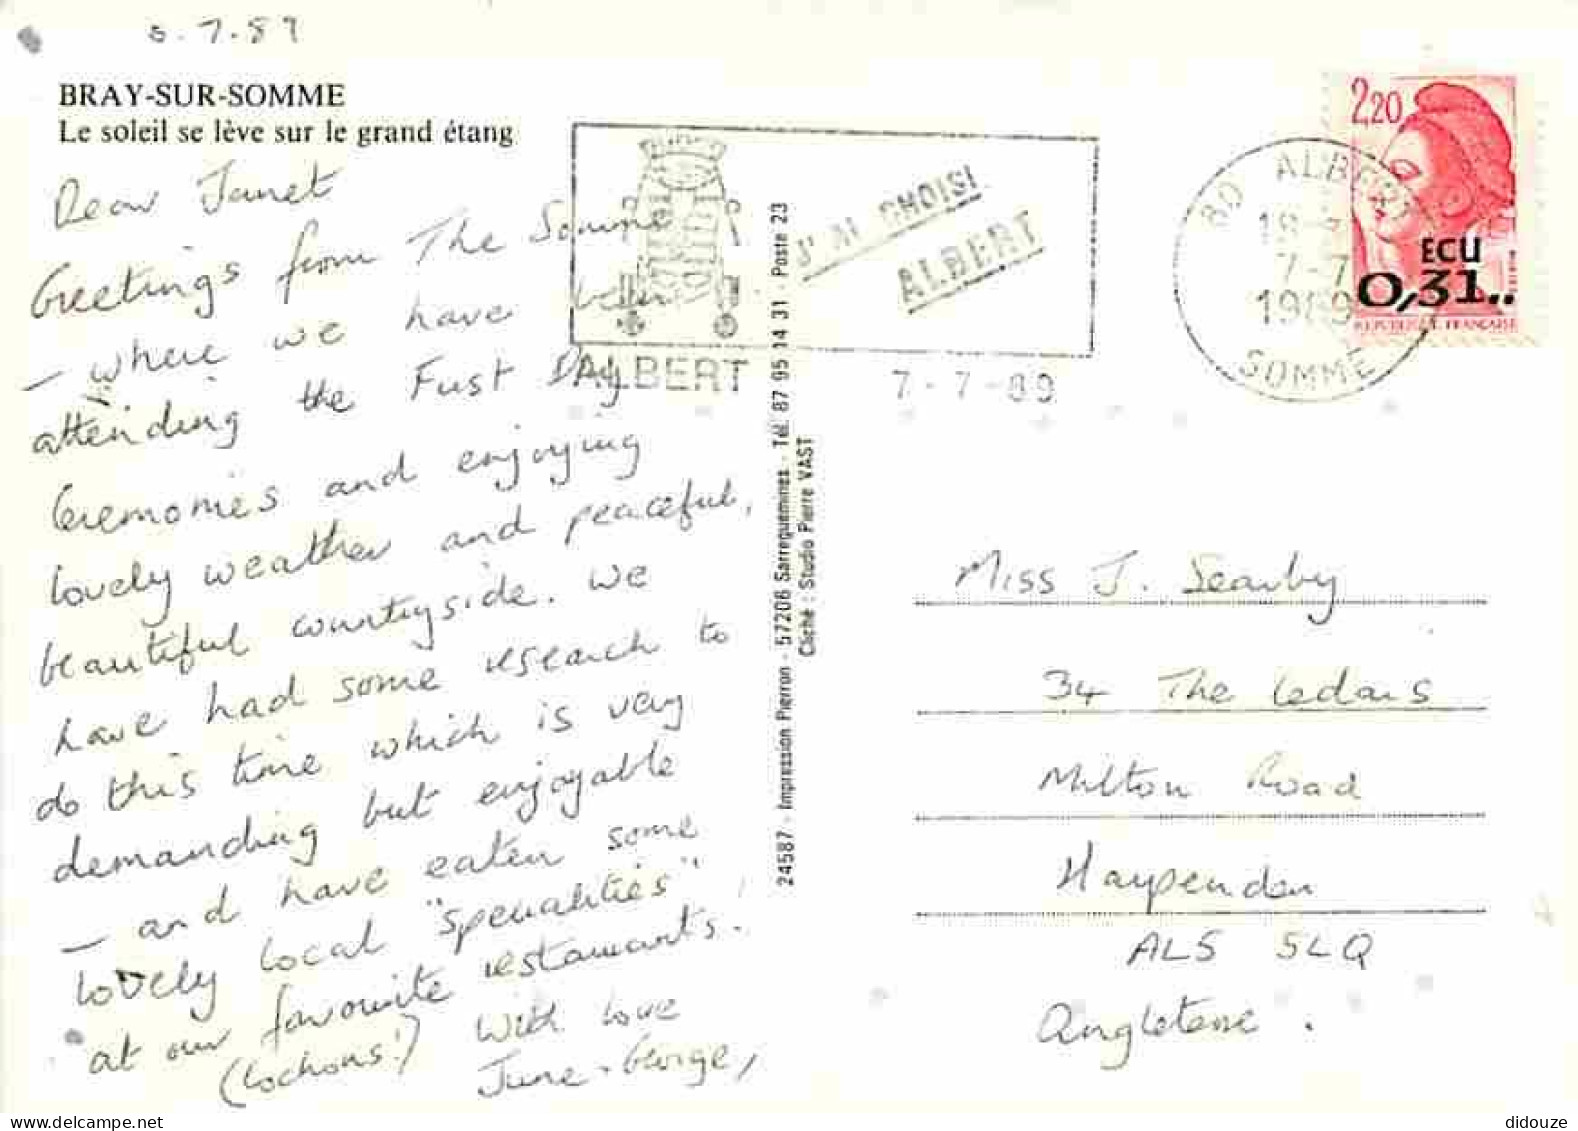 5.7.89
BRAY-SUR-SOMME
Le soleil se lève sur le grand étang
Dear Janet
Greetings from The Somme
– where we have been
attending the First Day
Ceremonies and enjoying
lovely weather and peaceful,
beautiful countryside. We
have had some research to
do this time which is very
demanding but enjoyable
– and have eaten some
lovely local "specialities"
at our favourite restaurants!
(Cochons!) With love
June & George,
J'AI CHOISI
ALBERT
ALBERT
7-7-89
24587 - Impression Pierron - 57206 Sarreguemines - Tél. 87 95 14 31 - Poste 23
Cliché : Studio Pierre VAST
80 ALBERT
18 H
7-7
1989
SOMME
2,20
ECU
0,31..
REPUBLIQUE FRANÇAISE
Miss J. Searby
34 The Cedars
Milton Road
Harpenden
AL5 5LQ
Angleterre.
delcampe.net
didouze